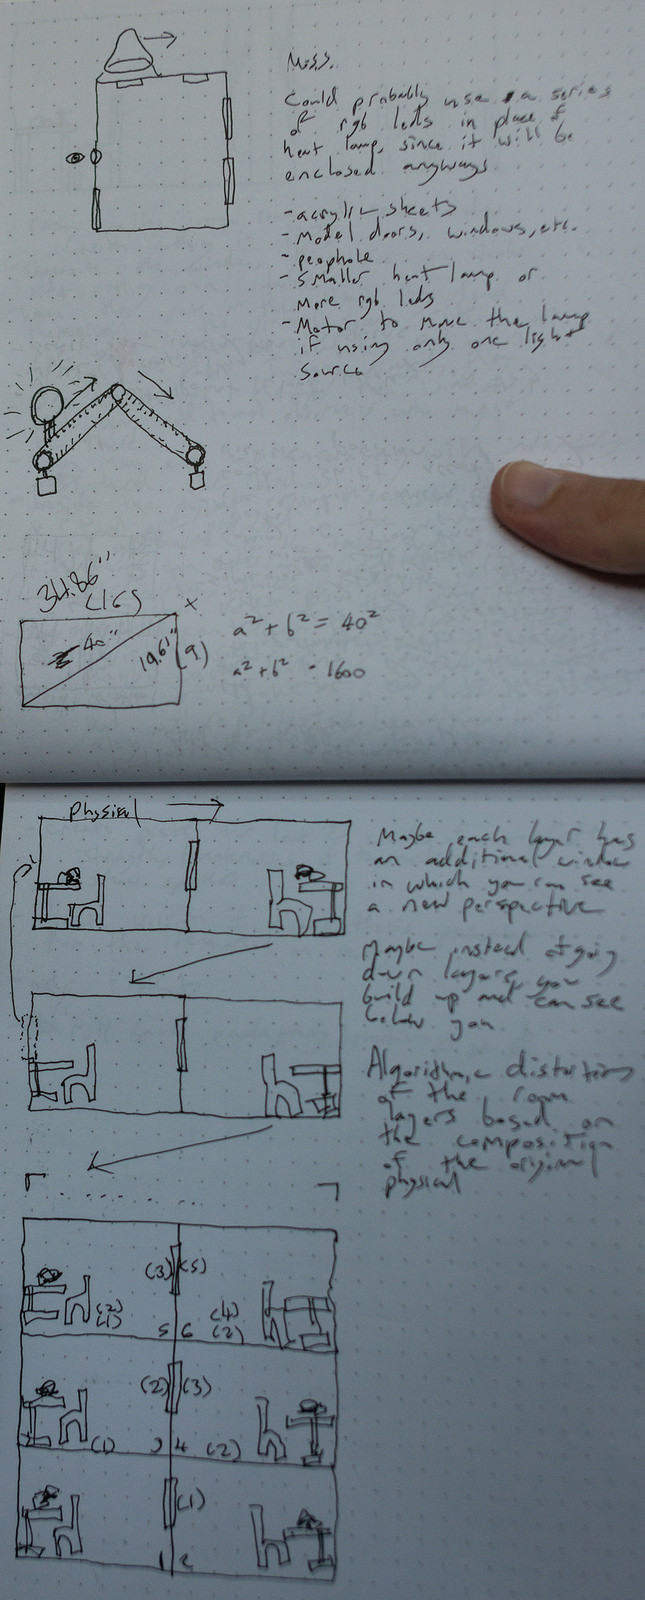 Could probably use a series
of rgb leds in place of
heat lamp, since it will be
enclosed anyways
- acrylic sheets
- Model doors, windows, etc.
- peophole
- smaller heat lamp or
more rgb leds
- Motor to move the lamp
if using only one light
source
34.86"
(16)
x
40"
19.61"
(9)
a² + b² = 40²
a² + b² = 1600
physical
Maybe each layer has
an additional window
in which you can see
a new perspective
Maybe instead of going
down layers, you
build up and can see
below you
Algorithmic distortions
of the room
layers based on
the composition
of the original
physical
(3) (5)
(2) (4)
(1) 5 6 (2)
(2) (3)
(1) 3 4 (2)
(1)
1 2